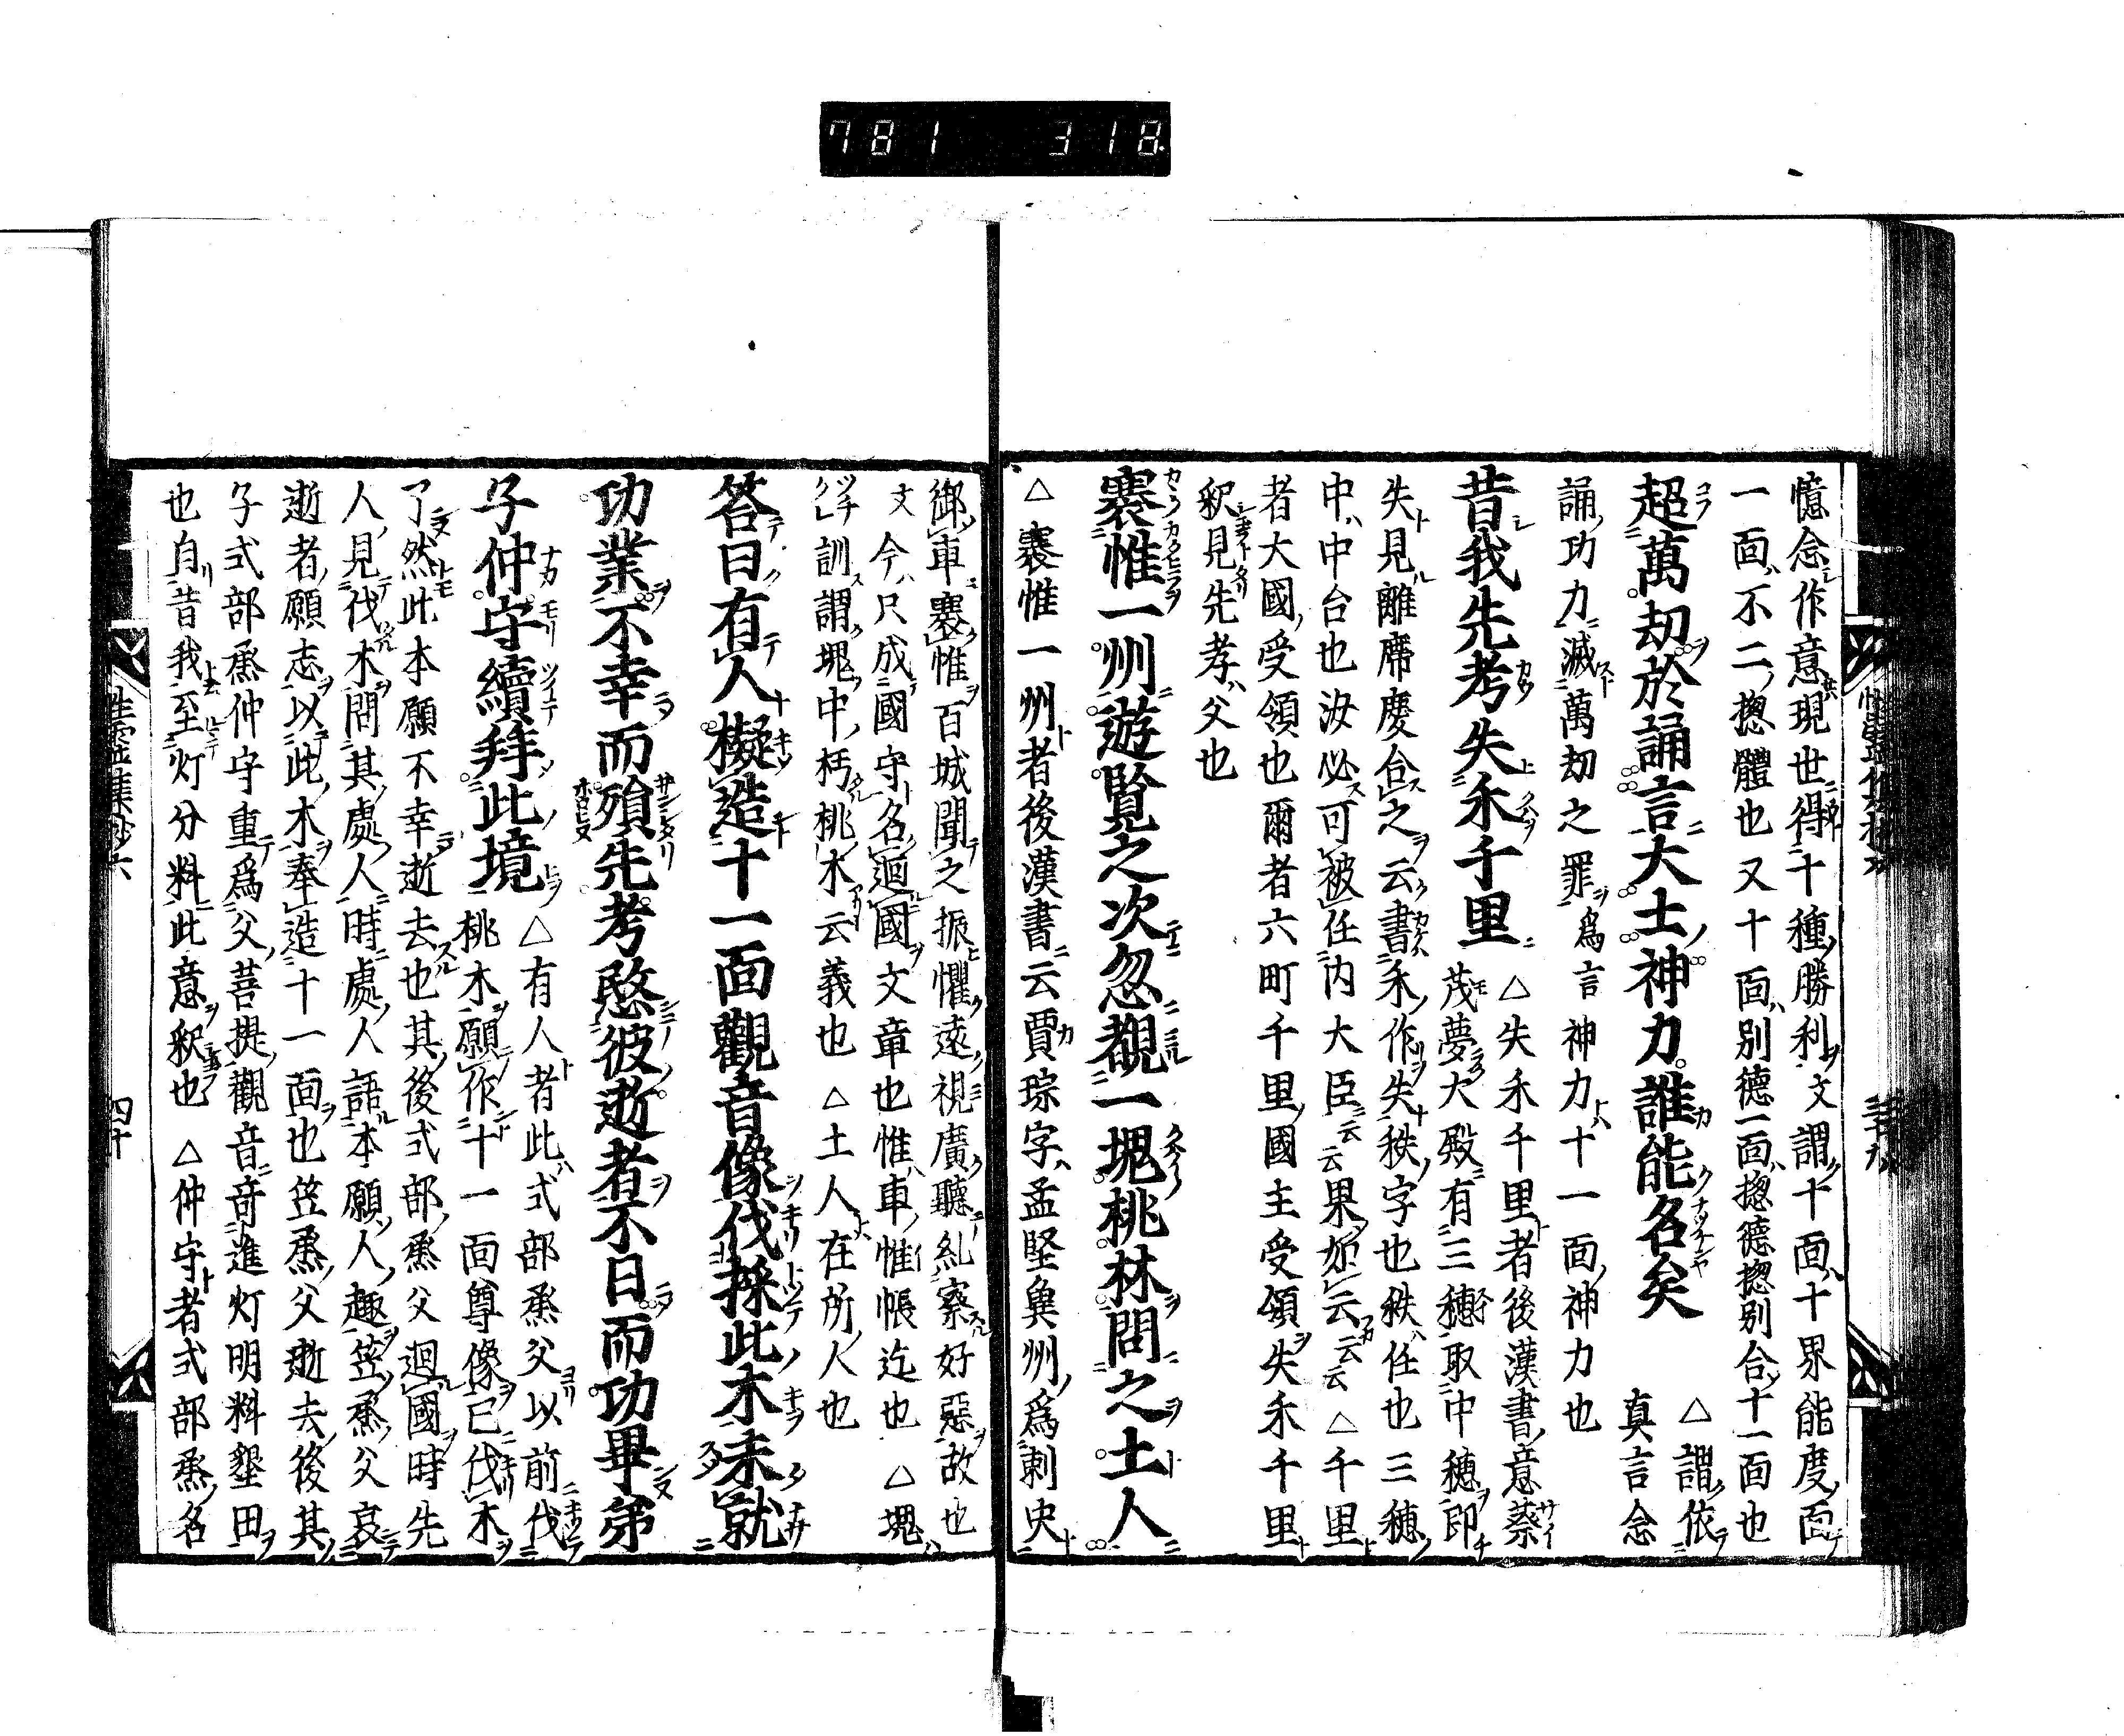 781 318
憶念作意現世得十種勝利文謂十面十界能度面
一面不二揔體也又十面別德一面揔德揔別合十一面也
超萬劫於誦言大士神力誰能名矣 △謂依
真言念
誦功力滅萬劫之罪爲言神力十一面神力也
昔我先考失禾千里 △失禾千里者後漢書意蔡
茂夢大殿有三穗取中穗即
失見離席慶合之云書禾作失秩字也秩任也三穗
中中台也汝必可被任内大臣云云果如云云云△千里
者大國受領也爾者六町千里國主受領失禾千里
釈見先孝父也
褰帷一州遊覧之次忽覩一塊桃林問之土人
△褰帷一州者後漢書云賈琮字孟堅兾州爲刺史
御車褰帷百城聞之振懼遠視廣聽糺察好惡故也
文今尺成國守名迴國文章也惟車帷帳迄也 △塊
訓謂塊中杇桃木云義也 △土人在所人也
答曰有人擬造十一面觀音像伐採此木未就
功業不幸而殞先考愍彼逝者不日而功畢弟
子仲守續拜此境 △有人者此式部烝父以前伐
桃木願作十一面尊像已伐木
了然此本願不幸逝去也其後式部烝父迴國時先
人見伐木問其處人時處人語本願人趣笠烝父哀
逝者願志以此木奉造十一面也笠烝父逝去後其
子式部烝仲守重爲父菩提觀音音進灯明料墾田
也自昔我至灯分料此意釈也 △仲守者式部烝名
性靈集鈔六
四十